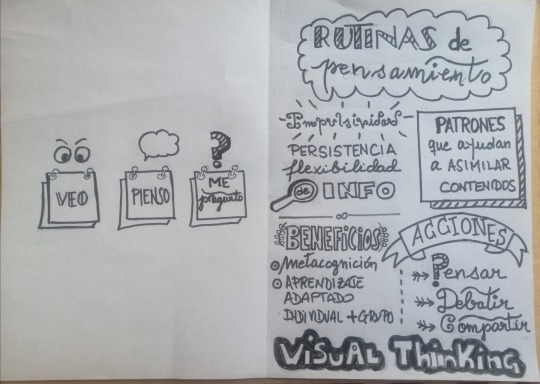 VEO
PIENSO
?
ME
pregunto
RUTINAS de
pensamiento
PERSISTENCIA
flexibilidad
de INFO
PATRONES
que ayudan
a ASIMILAR
CONTENIDOS
BENEFiCiOS
Metacognición
APRENDIZAJE
ADAPTADO
INDIVIDUAL + GRUPO
ACCIONES
Pensar
Debatir
Compartir
ViSUAL THiNKiNG